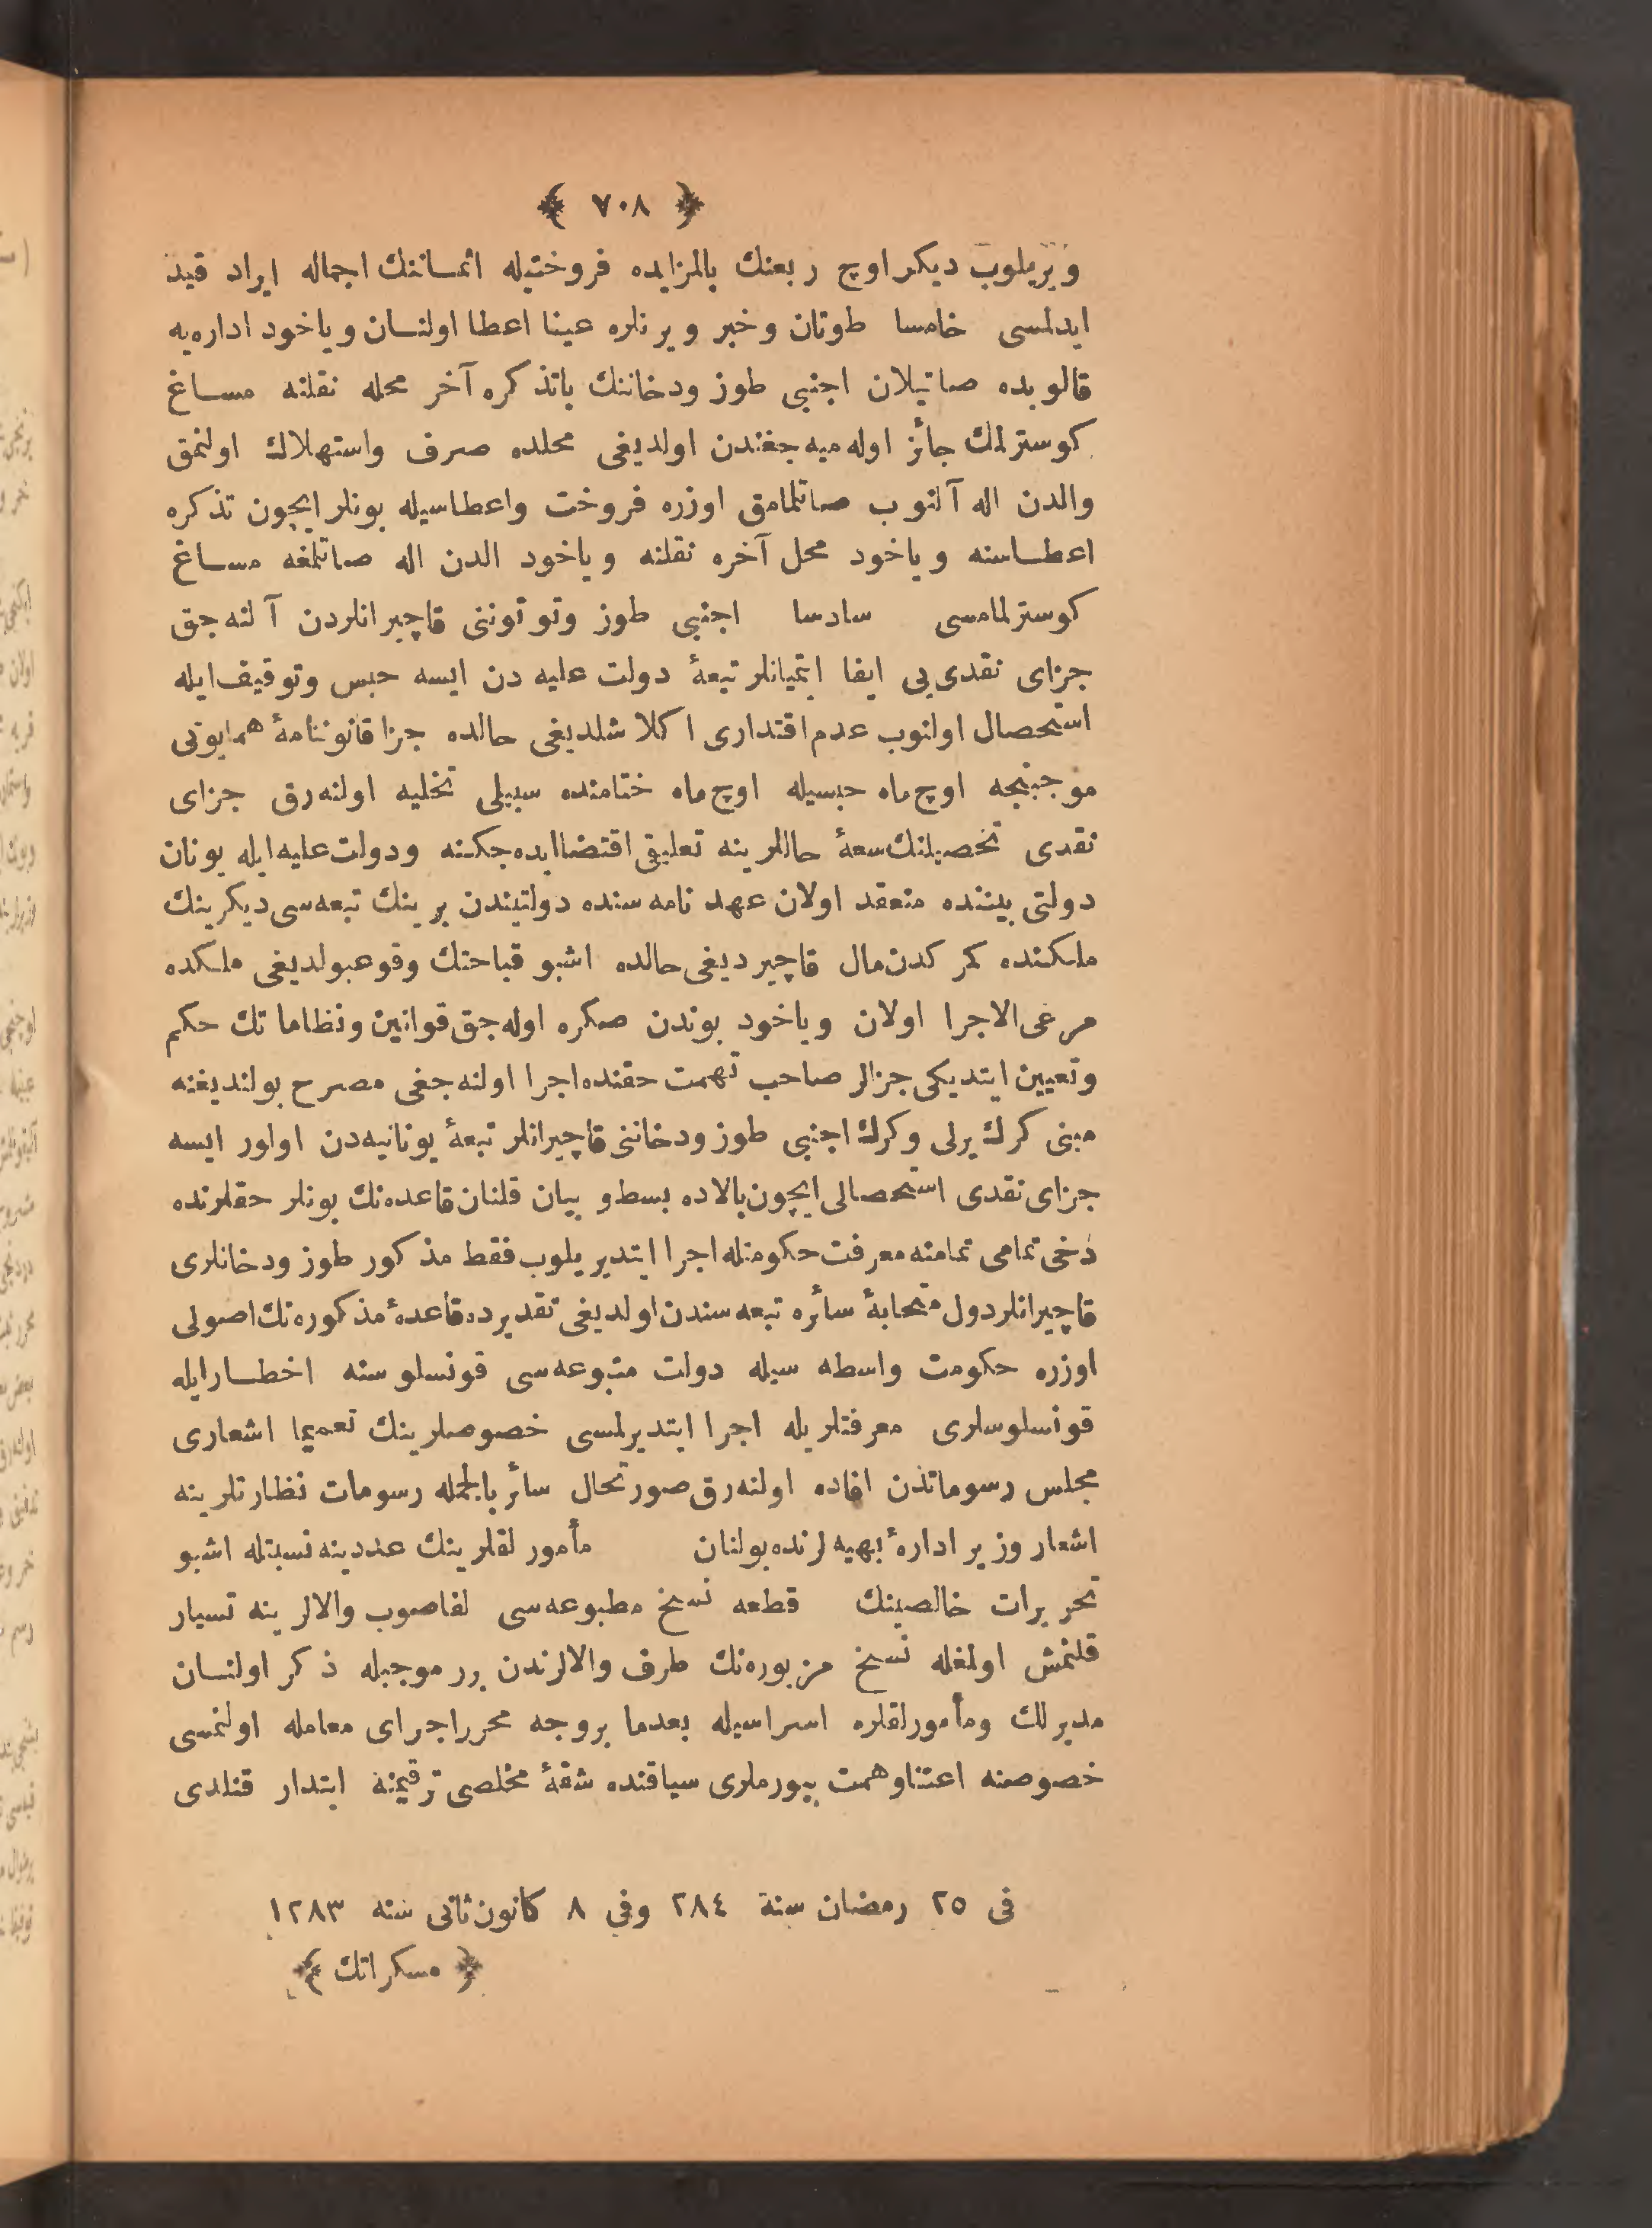 ﴿ ٧٠٨ ﴾
ويريلوب ديكر اوچ ربعنك بالمزايده فروختيله اثمــاننك اجماله ايراد قيد
ايدلمسى خامسا طوتان وخبر ويرنلره عينا اعطا اولنــان وياخود اداره‌يه
قالوبده صاتيلان اجنبى طوز ودخاننك باتذكره آخر محله نقلنه مســاغ
كوسترلمك جائز اوله‌ميه‌جغندن اولديغى محلده صرف واستهلاك اولنمق
والدن اله آلنوب صاتلمامق اوزره فروخت واعطاسيله بونلر ايچون تذكره
اعطــاسنه وياخود محل آخره نقلنه وياخود الدن اله صاتلمغه مســاغ
كوسترلمامسى سادسا اجنبى طوز وتوتوننى قاچيرانلردن آلنه‌جق
جزاى نقدى‌يى ايفا ايتميانلر تبعۀ دولت عليه‌دن ايسه حبس وتوقيف ايله
استحصال اولنوب عدم اقتدارى اكلاشلديغى حالده جزا قانوننامۀ همايونى
موجبنجه اوچ ماه حبسيله اوچ ماه ختامنده سبيلى تخليه اولنه‌رق جزاى
نقدى تحصيلنك سعۀ حاللرينه تعليقى اقتضا ايده‌جكنه ودولت عليه ايله يونان
دولتى بيننده منعقد اولان عهدنامه‌سنده دولتيندن برينك تبعه‌سى ديكرينك
ملكنده كمركدن مال قاچيرديغى حالده اشبو قباحتك وقوعبولديغى ملكده
مرعى الاجرا اولان وياخود بوندن صكره اوله‌جق قوانين ونظاماتك حكم
وتعيين ايتديكى جزالر صاحب تهمت حقنده اجرا اولنه‌جغى مصرح بولنديغنه
مبنى كرك يرلى وكرك اجنبى طوز ودخاننى قاچيرانلر تبعۀ يونانيه‌دن اولور ايسه
جزاى نقدى استحصالى ايچون بالاده بسط و بيان قلنان قاعده‌نك بونلر حقلرنده
دخى تمامى تمامنه معرفت حكومتله اجرا ايتديريلوب فقط مذكور طوز ودخانلرى
قاچيرانلر دول متحابۀ سائره تبعه‌سندن اولديغى تقديرده قاعدۀ مذكوره‌نك اصولى
اوزره حكومت واسطه‌سيله دولت متبوعه‌سى قونسلوسنه اخطــار ايله
قونسلوسلرى معرفتلريله اجرا ايتديرلمسى خصوصلرينك تعميما اشعارى
مجلس رسوماتدن افاده اولنه‌رق صورتحال سائر بالجمله رسومات نظارتلرينه
اشعار وزير ادارۀ بهيه‌لرنده بولنان مأمورلقلرينك عددينه نسبتله اشبو
تحريرات خالصينك قطعه نسخ مطبوعه‌سى لفاصوب والالرينه تسيار
قلنمش اولمغله نسخ مزبوره‌نك طرف والالرندن برر موجبله ذكر اولنــان
مديرلك ومأمورلقلره اسراسيله بعدما بروجه محرر اجراى معامله اولنمسى
خصوصنه اعتنا وهمت بيورملرى سياقنده شقۀ مخلصى ترقيمنه ابتدار قلندى
فى ٢٥ رمضان سنة ٢٨٤ وفى ٨ كانون ثانى سنه ١٢٨٣
﴿ مسكراتك ﴾